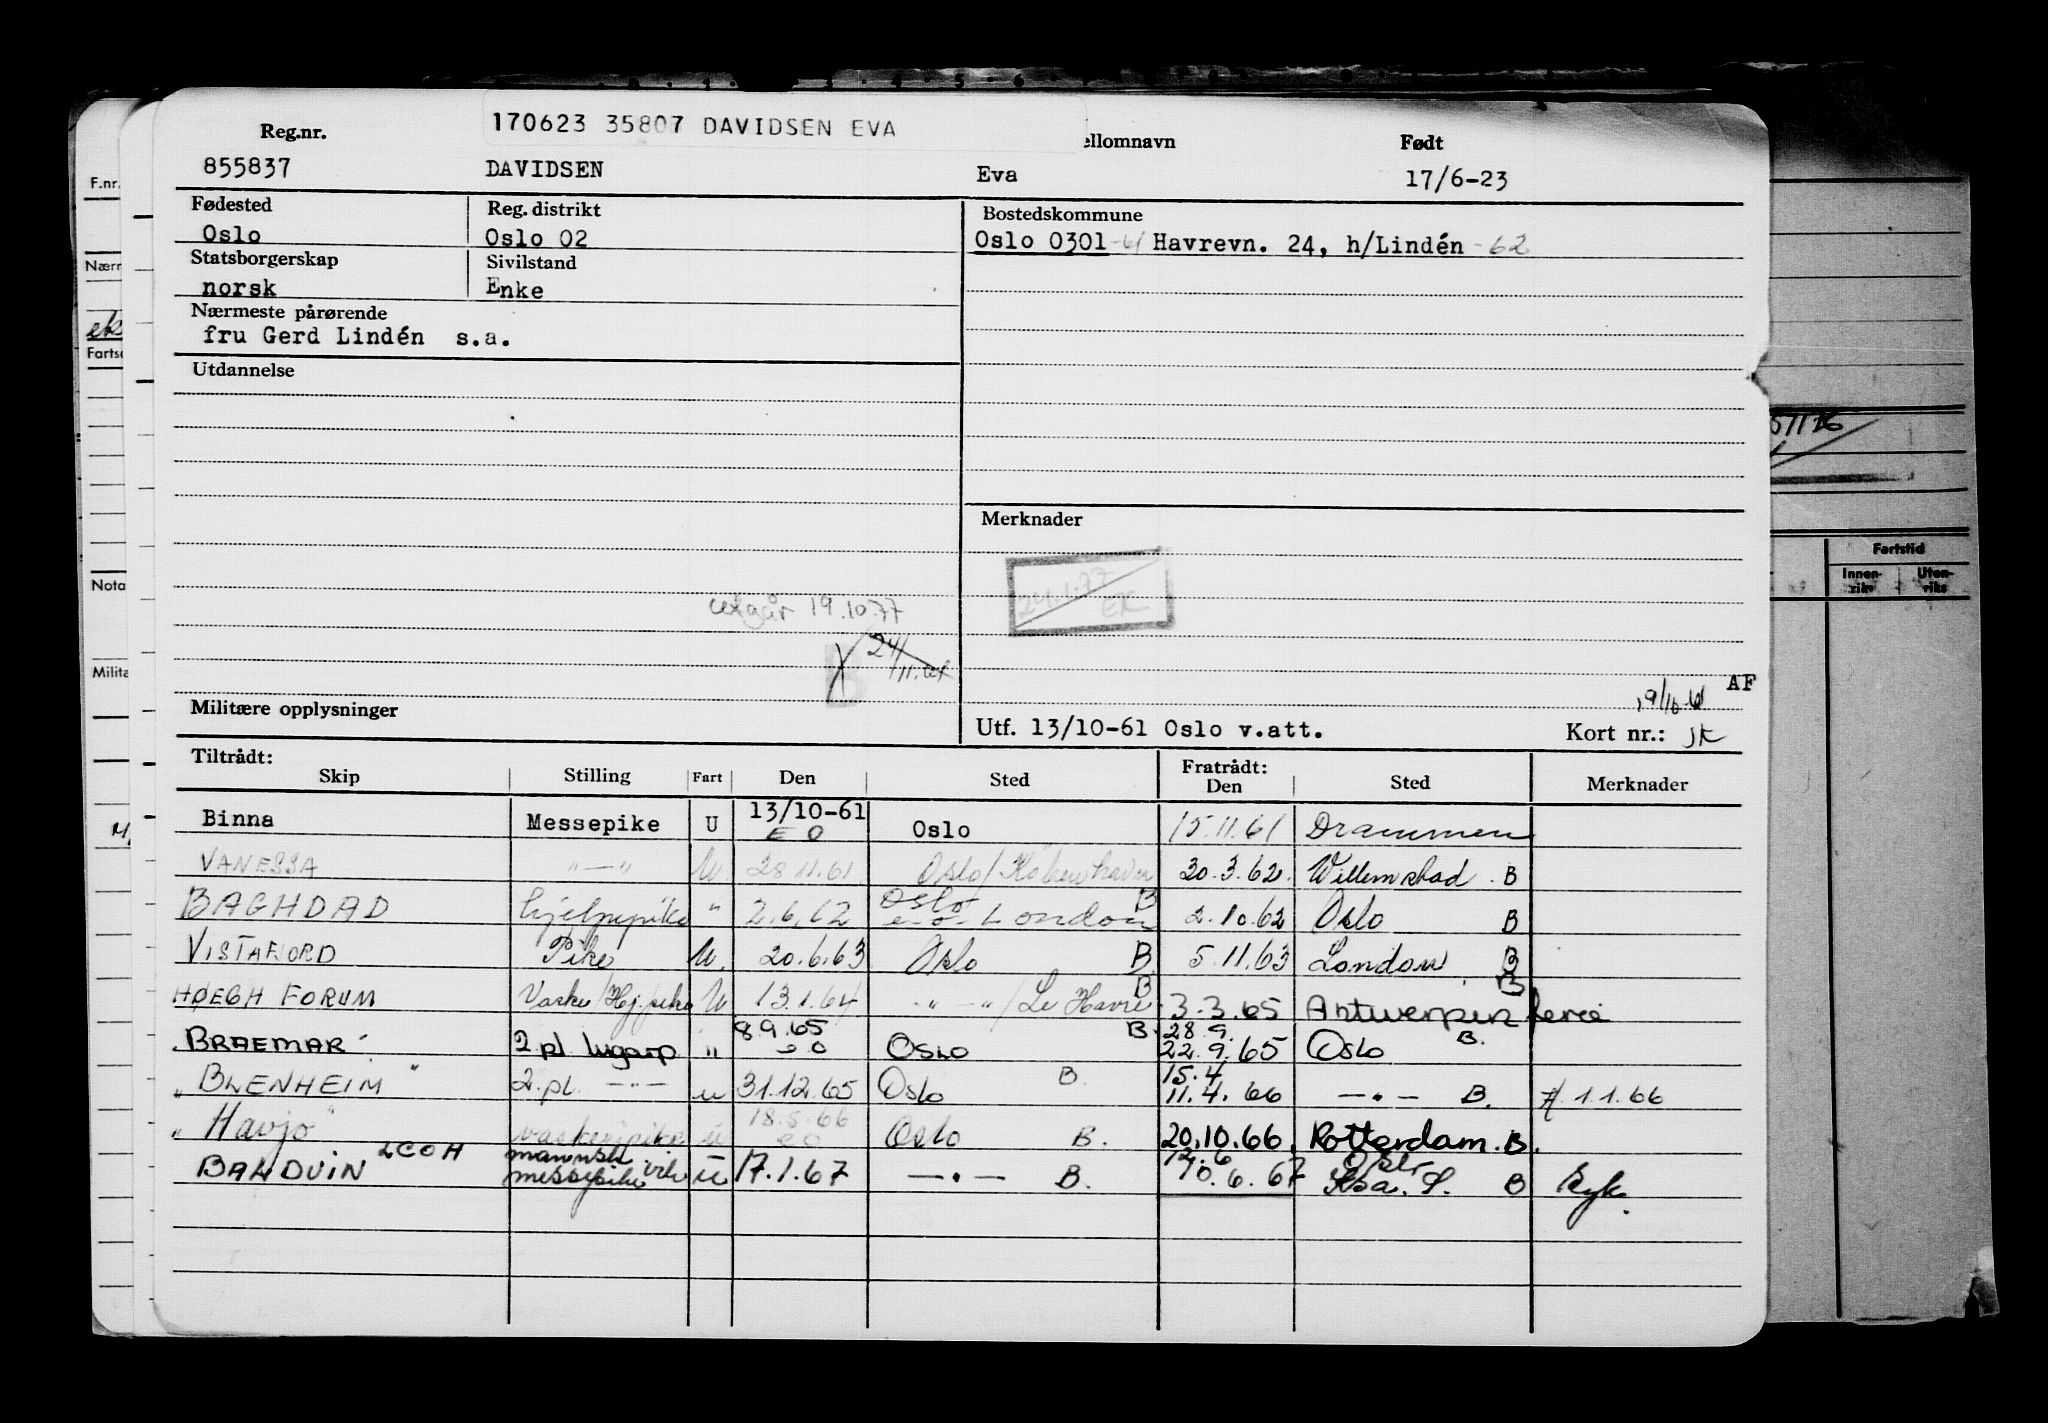 170623 35807 DAVIDSEN EVA
Reg.nr. ellomnavn Født
855837 DAVIDSEN Eva 17/6-23
Fødested Reg. distrikt Bostedskommune
Oslo Oslo 02 Oslo 0301 -61 Havrevn. 24, h/Lindén -62
Statsborgerskap Sivilstand
norsk Enke
Nærmeste pårørende
fru Gerd Lindén s.a.
Utdannelse
Merknader
24.1.77
EK
utgår 19.10.77
24/
AF
19/10-61
Militære opplysninger
Utf. 13/10-61 Oslo v.att. Kort nr.:
Tiltrådt: Fratrådt:
Skip Stilling Fart Den Sted Den Sted Merknader
Binna Messepike U 13/10-61 EO Oslo 15.11.61 Drammen
VANESSA "—" U 28.11.61 Oslo/København 20.3.62. Willemstad. B
BAGHDAD hjelpepike " 2.6.62 Oslo B e.o. London 2.10.62 Oslo B
VISTAFJORD Pike U. 20.6.63 Oslo B 5.11.63 London B
HØEGH FORUM Vaske/Hj.pike U 13.1.64 "—"/Le Havre B 3.3.65 Antwerpen B ferie
"BRAEMAR" 2 pl lugarp " 8.9.65 eo Oslo B. 28.9. 22.9.65 Oslo B.
"BLENHEIM" 2.pl. —"— u 31.12.65 Oslo B. 15.4 11.4.66 —"— B. 1.1.66
"Havjo" vaskeripike u 18.5.66 eo Oslo B. 20.10.66. Rotterdam. B.
BALDUIN LCOH mannsk messepike vik u 17.1.67 —"— B. 12.6 10.6.67 Oslo B Syk.
F.nr.
Nærm
Fartso
Nota
Milita
Fartstid
Innen-
riks
Uten-
riks